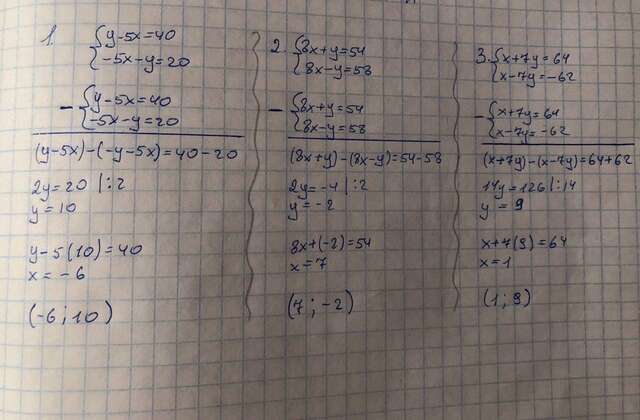 1. {y-5x=40
{-5x-y=20
- {y-5x=40
{-5x-y=20
(y-5x)-(-y-5x)=40-20
2y=20 |:2
y=10
y-5(10)=40
x=-6
(-6;10)
2. {8x+y=54
{8x-y=58
- {8x+y=54
{8x-y=58
(8x+y)-(8x-y)=54-58
2y=-4 |:2
y=-2
8x+(-2)=54
x=7
(7;-2)
3. {x+7y=64
{x-7y=-62
- {x+7y=64
{x-7y=-62
(x+7y)-(x-7y)=64+62
14y=126 |:14
y=9
x+7(9)=64
x=1
(1;9)